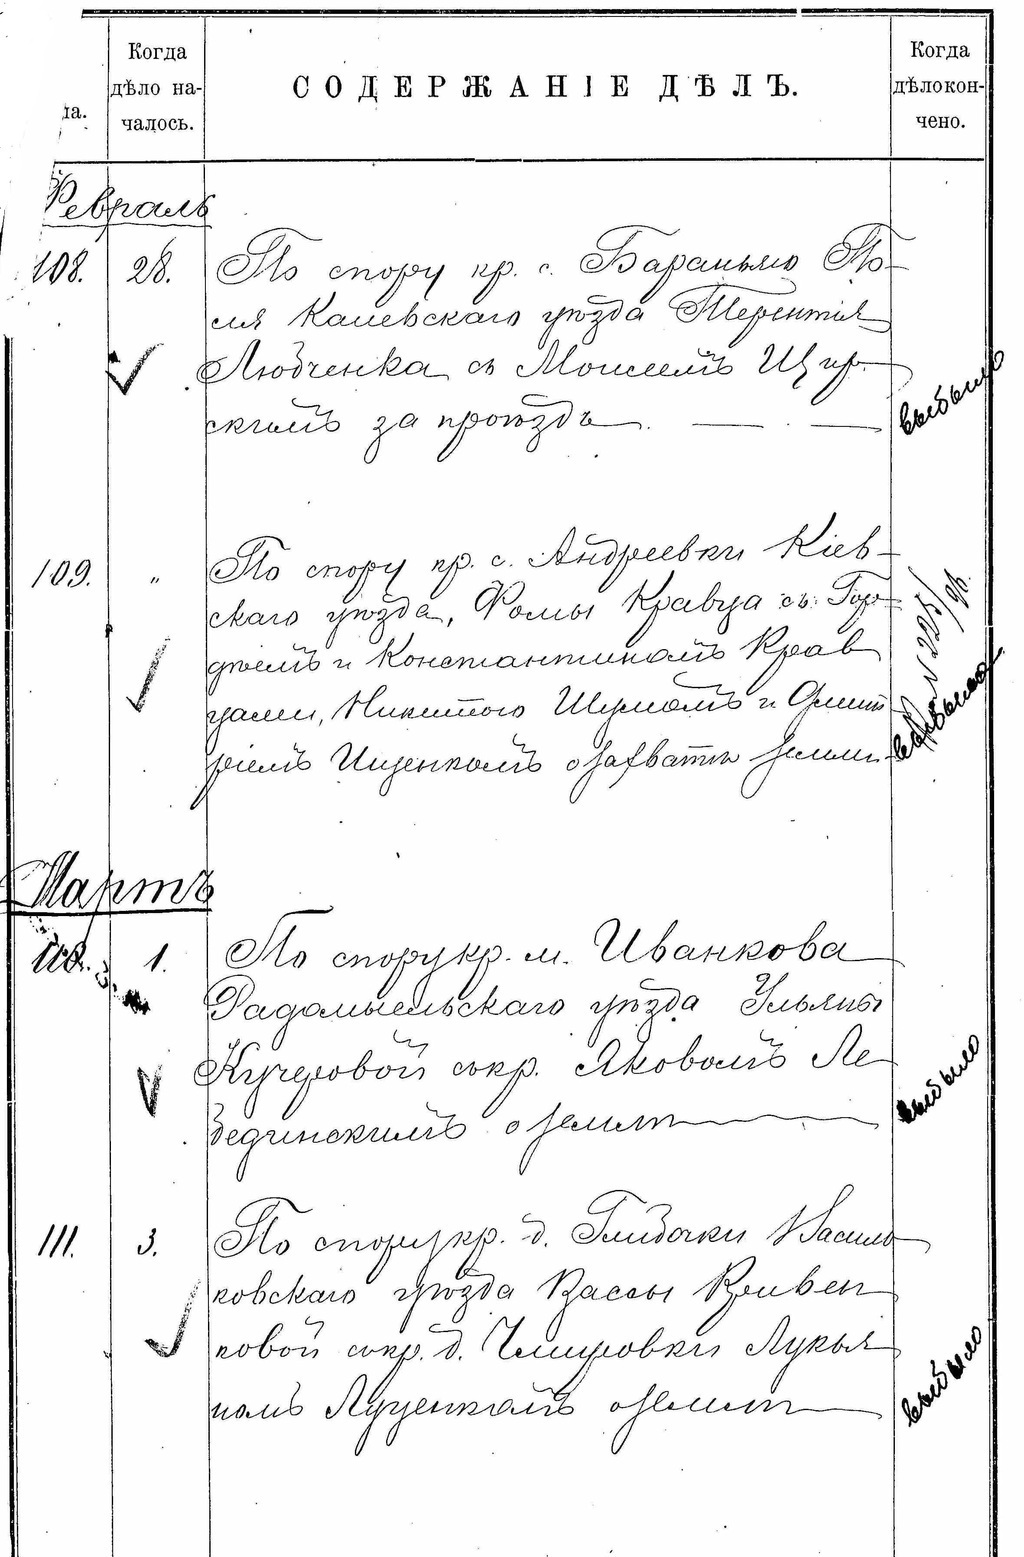 ла.
Когда
дѣло на-
чалось.
СОДЕРЖАНІЕ ДѢЛЪ.
Когда
дѣло кон-
чено.
Февраль
108. 28. По спору кр. с. Бараньяго По-
ля Каневскаго уѣзда Терентія
Любченка съ Моисеемъ Щир-
скимъ за проѣздъ
выбыло
109. " По спору кр. с. Андреевки Кіев-
скаго уѣзда, Фомы Кравца съ Гор-
дѣемъ и Константиномъ Крав
цами, Никитою Шумомъ и Дмит
ріемъ Ищенкомъ о захватѣ земли
выбыло
Мартъ
110. 1. По спору кр. м. Иванкова
Радомысльскаго уѣзда Ульяны
Кучеровой съ кр. Яковомъ Ле-
бединскимъ о землѣ
выбыло
111. 3. По спору кр. д. Глибочки Василь
ковскаго уѣзда Вассы Кривен
ковой съ кр. д. Чмировки Лукья
номъ Луценкомъ о землѣ
выбыло